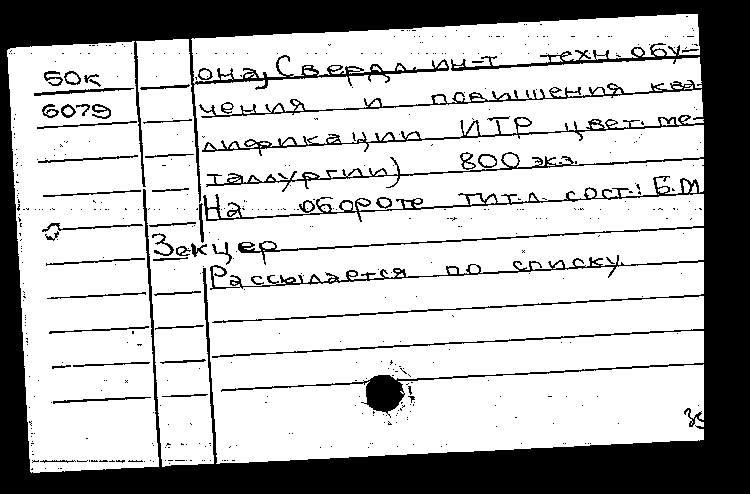 50к она, Свердл. ин-т техн. обу-
6079 чения и повышения ква-
лификации ИТР цвет. ме-
таллургии) 800 экз.
На обороте тит.л. сост.: Б.М.
Зекцер
Рассылается по списку.